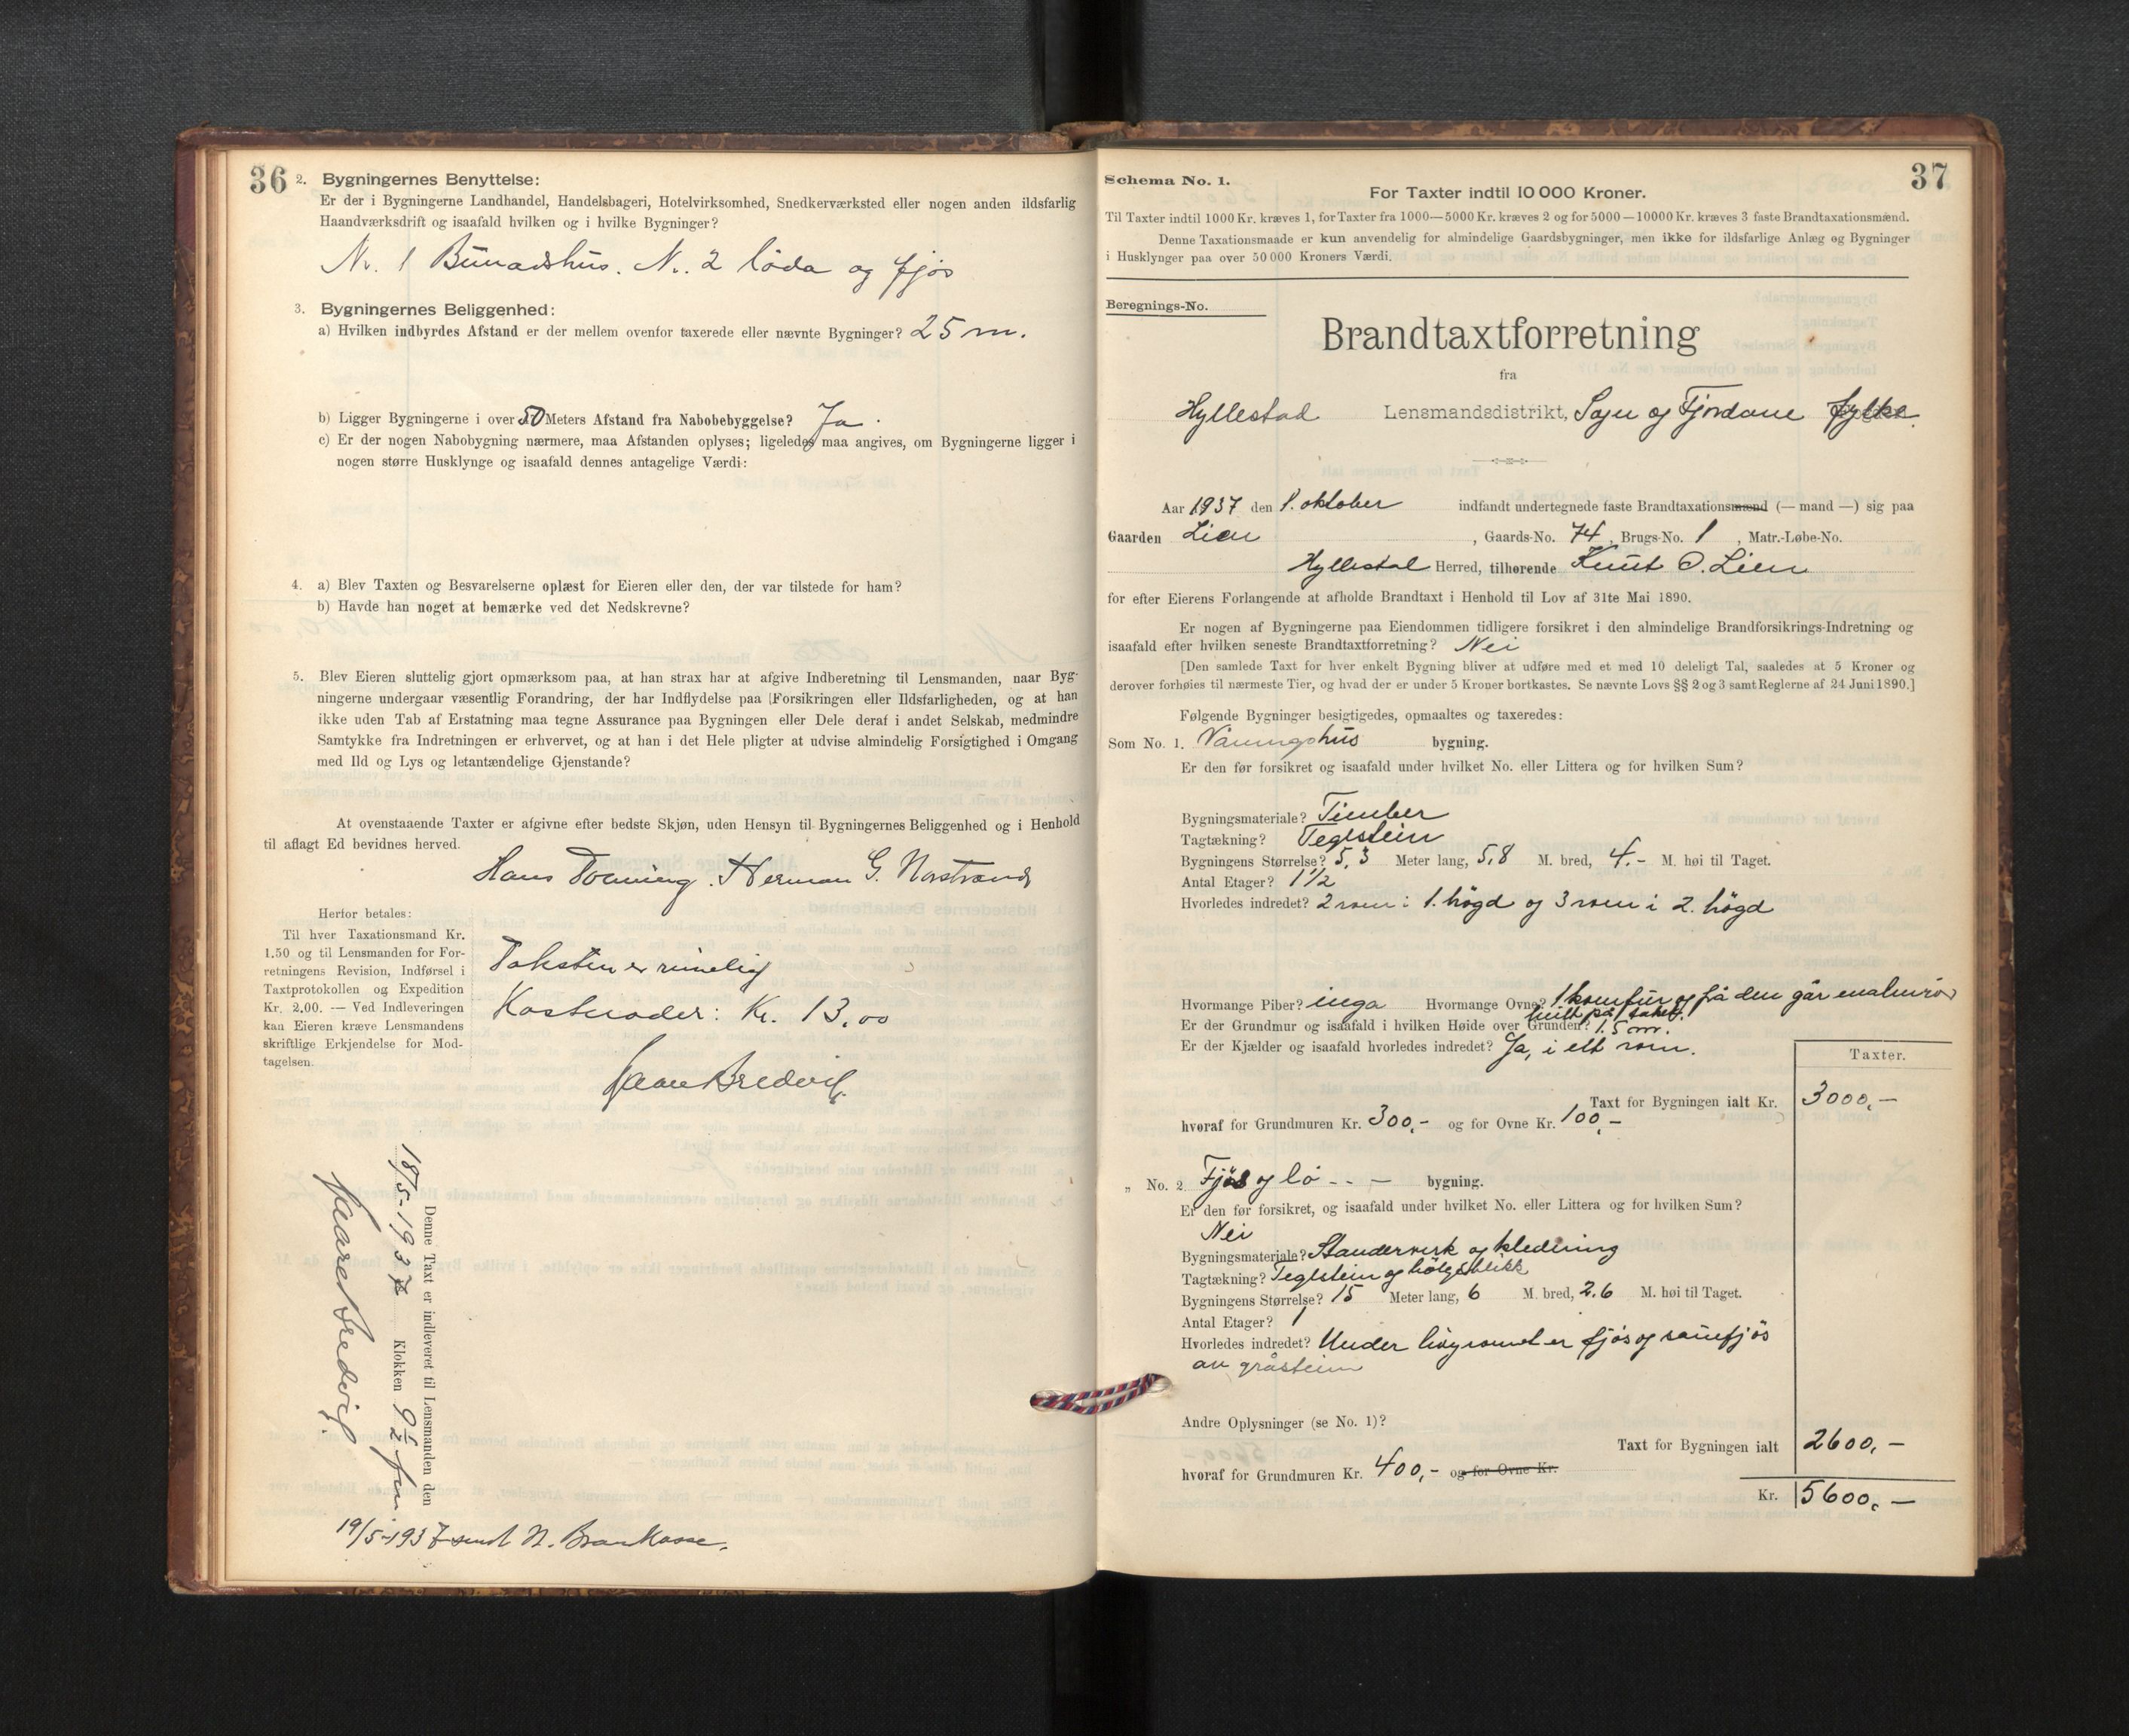 36
2. Bygningernes Benyttelse:
Er der i Bygningerne Landhandel, Handelsbageri, Hotelvirksomhed, Snedkerværksted eller nogen anden ildsfarlig
Haandværksdrift og isaafald hvilken og i hvilke Bygninger?
Nr. 1 Bunadshus. Nr. 2 löda og fjös
3. Bygningernes Beliggenhed:
a) Hvilken indbyrdes Afstand er der mellem ovenfor taxerede eller nævnte Bygninger? 25 m.
b) Ligger Bygningerne i over 50 Meters Afstand fra Nabobebyggelse? Ja.
c) Er der nogen Nabobygning nærmere, maa Afstanden oplyses; ligeledes maa angives, om Bygningerne ligger i
nogen større Husklynge og isaafald dennes antagelige Værdi:
4. a) Blev Taxten og Besvarelserne oplæst for Eieren eller den, der var tilstede for ham?
b) Havde han noget at bemærke ved det Nedskrevne?
5. Blev Eieren sluttelig gjort opmærksom paa, at han strax har at afgive Indberetning til Lensmanden, naar Byg-
ningerne undergaar væsentlig Forandring, der har Indflydelse paa Forsikringen eller Ildsfarligheden, og at han
ikke uden Tab af Erstatning maa tegne Assurance paa Bygningen eller Dele deraf i andet Selskab, medmindre
Samtykke fra Indretningen er erhvervet, og at han i det Hele pligter at udvise almindelig Forsigtighed i Omgang
med Ild og Lys og letantændelige Gjenstande?
At ovenstaaende Taxter er afgivne efter bedste Skjøn, uden Hensyn til Bygningernes Beliggenhed og i Henhold
til aflagt Ed bevidnes herved.
Hans Herman G. Norstrand
Herfor betales:
Til hver Taxationsmand Kr.
1.50 og til Lensmanden for For-
retningens Revision, Indførsel i
Taxtprotokollen og Expedition
Kr. 2.00. — Ved Indleveringen
kan Eieren kræve Lensmandens
skriftlige Erkjendelse for Mod-
tagelsen.
Taksten er rimelig
Kostnader: Kr. 13.00
Bredvik
Denne Taxt er indleveret til Lensmanden den
18/5-1937 Klokken 9 1/2 fm
Bredvik
19/5-1937 sendt N. Brankasse.
37
Schema No. 1.
For Taxter indtil 10 000 Kroner.
Til Taxter indtil 1000 Kr. kræves 1, for Taxter fra 1000—5000 Kr. kræves 2 og for 5000—10000 Kr. kræves 3 faste Brandtaxationsmænd.
Denne Taxationsmaade er kun anvendelig for almindelige Gaardsbygninger, men ikke for ildsfarlige Anlæg og Bygninger
i Husklynger paa over 50 000 Kroners Værdi.
Beregnings-No.
Brandtaxtforretning
fra
Hyllestad Lensmandsdistrikt, Sogn og Fjordane fylke.
Aar 1937 den 1. oktober indfandt undertegnede faste Brandtaxationsmænd (— mand —) sig paa
Gaarden Lien, Gaards-No. 74, Brugs-No. 1, Matr.-Løbe-No.
Hyllestad Herred, tilhørende Knut O. Lien
for efter Eierens Forlangende at afholde Brandtaxt i Henhold til Lov af 31te Mai 1890.
Er nogen af Bygningerne paa Eiendommen tidligere forsikret i den almindelige Brandforsikrings-Indretning og
isaafald efter hvilken seneste Brandtaxtforretning? Nei
[Den samlede Taxt for hver enkelt Bygning bliver at udføre med et med 10 deleligt Tal, saaledes at 5 Kroner og
derover forhøies til nærmeste Tier, og hvad der er under 5 Kroner bortkastes. Se nævnte Lovs §§ 2 og 3 samt Reglerne af 24 Juni 1890.]
Følgende Bygninger besigtigedes, opmaaltes og taxeredes:
Som No. 1. Våningshus bygning.
Er den før forsikret og isaafald under hvilket No. eller Littera og for hvilken Sum?
Bygningsmateriale? Timber
Tagtækning? Teglstein
Bygningens Størrelse? 5,3 Meter lang, 5,8 M. bred, 4.- M. høi til Taget.
Antal Etager? 1 1/2
Hvorledes indredet? 2 rom i 1. högd og 3 rom i 2. högd
Hvormange Piber? inga Hvormange Ovne? 1 komfur og frå den går malmrör
midt på taket.
Er der Grundmur og isaafald i hvilken Høide over Grunden? 1.5 m.
Er der Kjælder og isaafald hvorledes indredet? Ja, i ett rom.
Taxter.
Taxt for Bygningen ialt Kr. 3000,-
hvoraf for Grundmuren Kr. 300,- og for Ovne Kr. 100,-
„ No. 2. Fjös og lö - - - bygning.
Er den før forsikret, og isaafald under hvilket No. eller Littera og for hvilken Sum?
Nei
Bygningsmateriale? Standerverk og kledning
Tagtækning? Teglstein og bölgeblikk
Bygningens Størrelse? 15 Meter lang, 6 M. bred, 2.6 M. høi til Taget.
Antal Etager? 1
Hvorledes indredet? Under höyromet er fjös og sauefjös
av gråstein
Andre Oplysninger (se No. 1)?
Taxt for Bygningen ialt 2600,-
hvoraf for Grundmuren Kr. 400,- og for Ovne Kr.
Kr. 5600,-